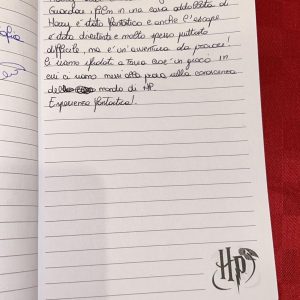 Guardare i film in una casa addobbata di
Harry è stato fantastico e anche l'escape
è stato divertente e molto spesso piuttosto
difficile, ma è un'avventura da provare!
Ci siamo sfidati a Tavia cioè un gioco in
cui ci siamo messi alla prova sulla conoscenza
del mondo di HP.
Esperienza fantastica!
HP